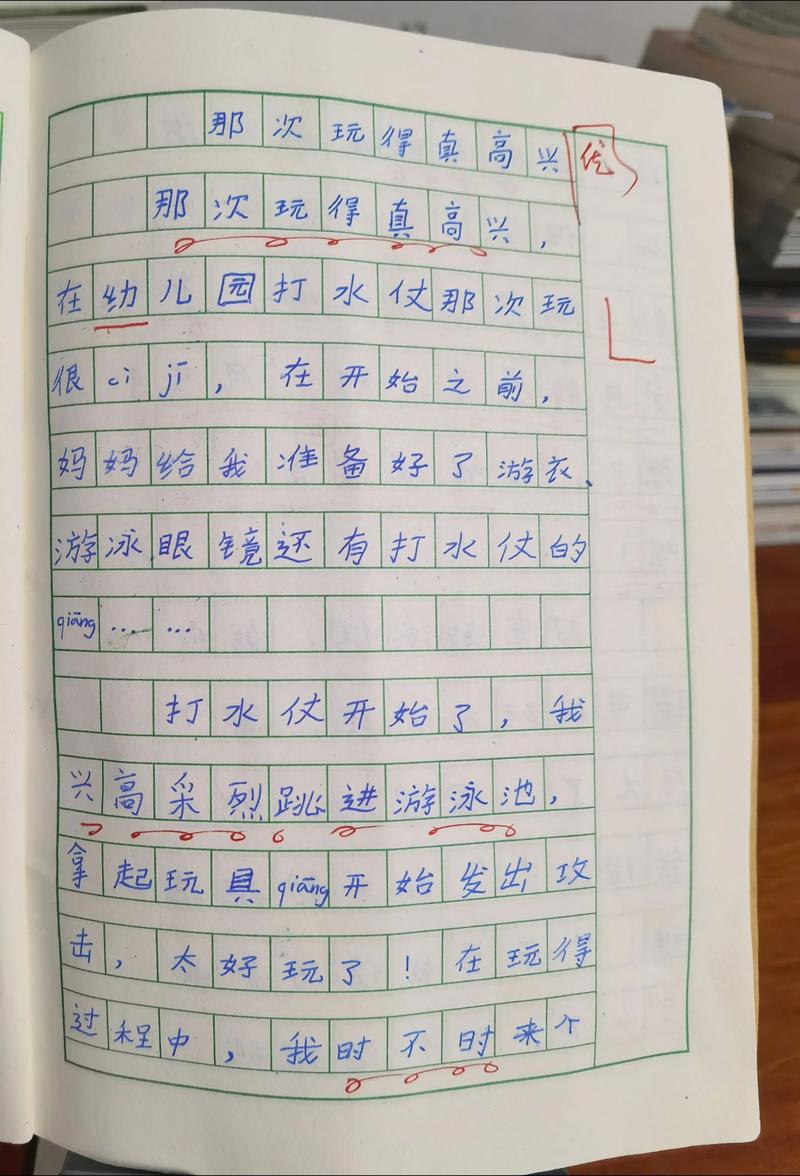 那次玩得真高兴
优
那次玩得真高兴，
在幼儿园打水仗那次玩
很cì jī，在开始之前，
妈妈给我准备好了游衣、
游泳眼镜还有打水仗的
qiāng……
打水仗开始了，我
兴高采烈跳进游泳池，
拿起玩具qiāng开始发出攻
击，太好玩了！在玩得
过程中，我时不时来个